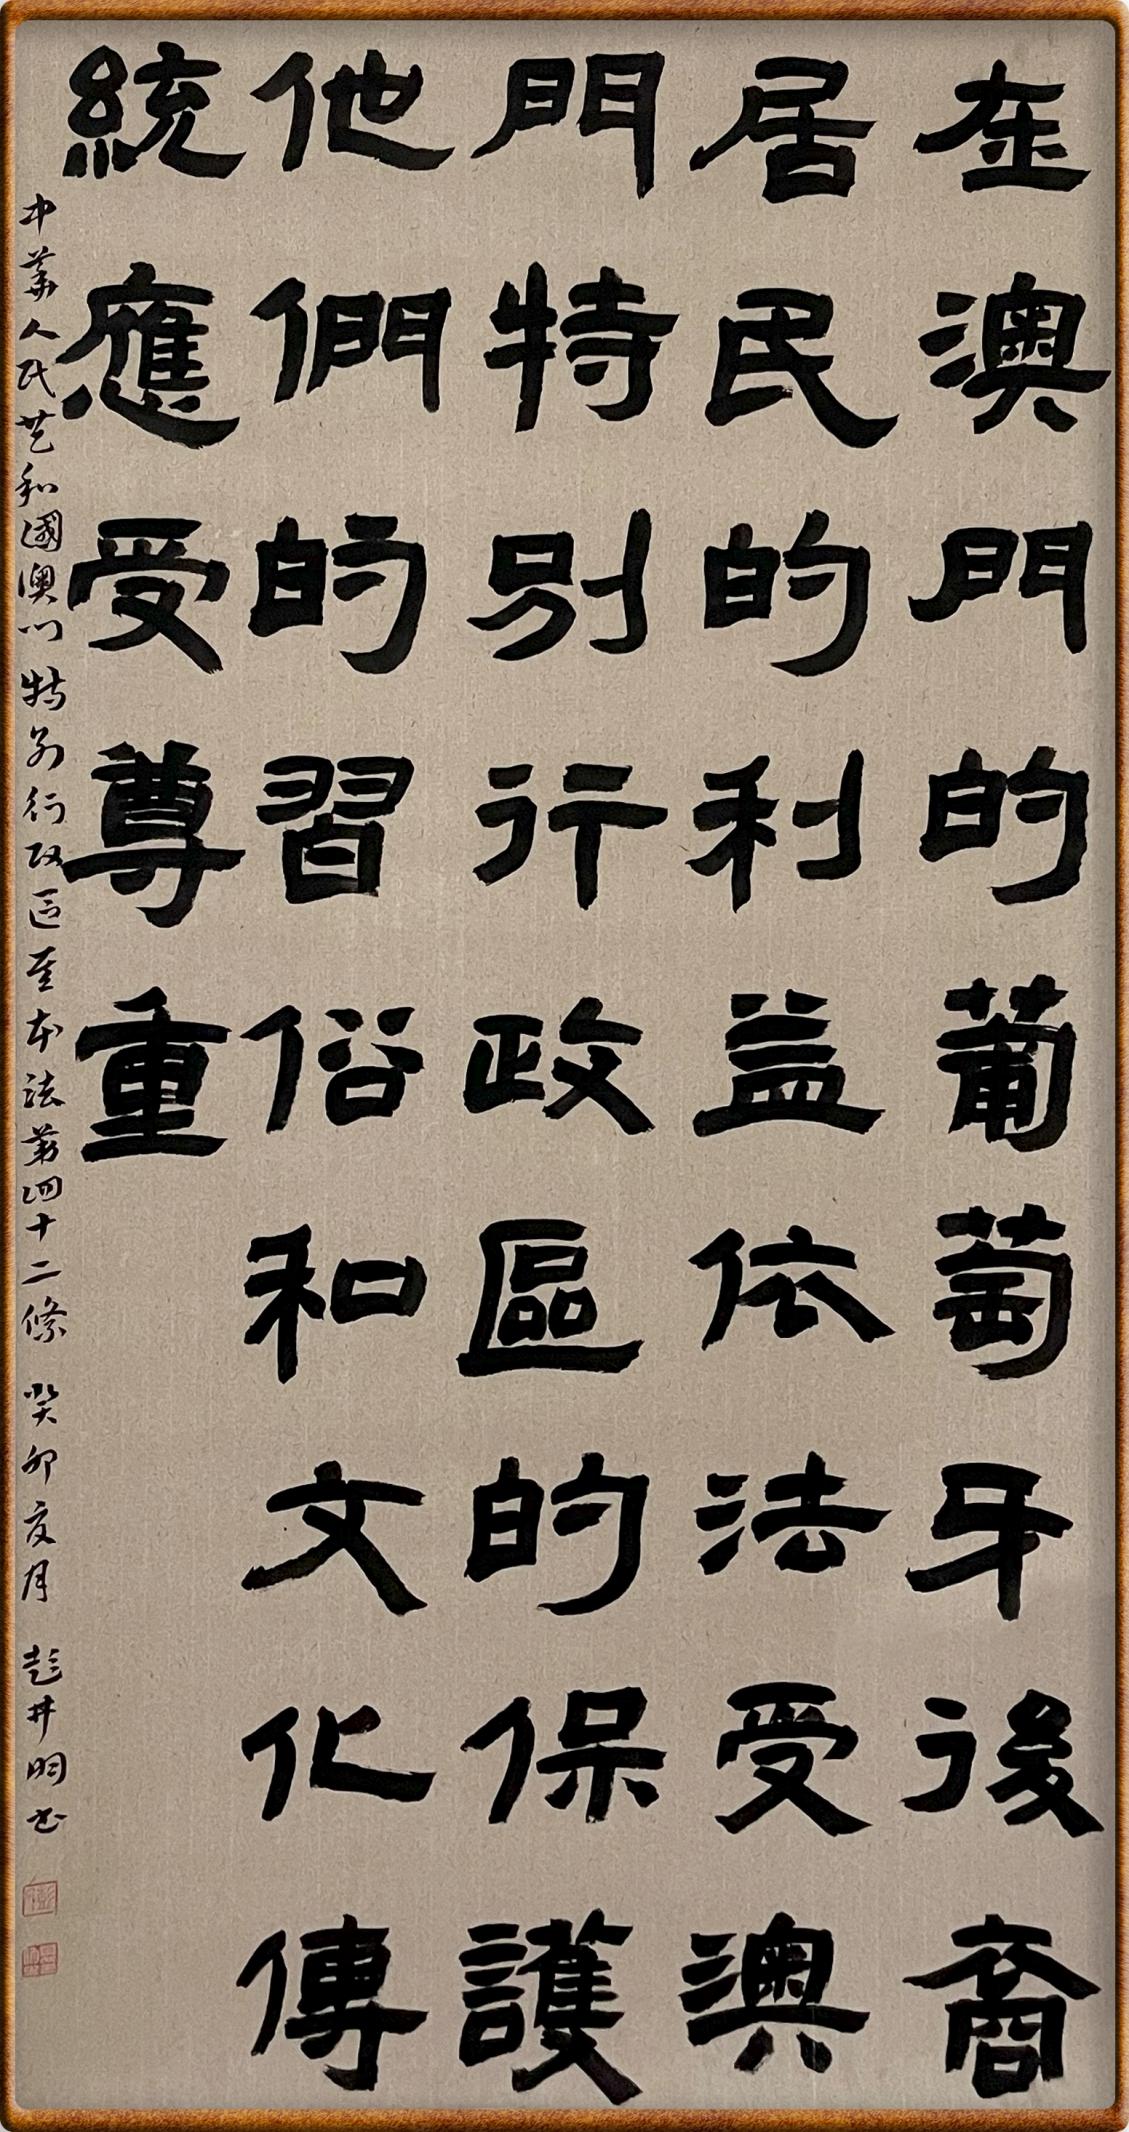 在澳門的葡萄牙後裔
居民的利益依法受澳
門特別行政區的保護
他們的習俗和文化傳
統應受尊重
中華人民共和國澳门特别行政區基本法第四十二條 癸卯夏月 彭井明书